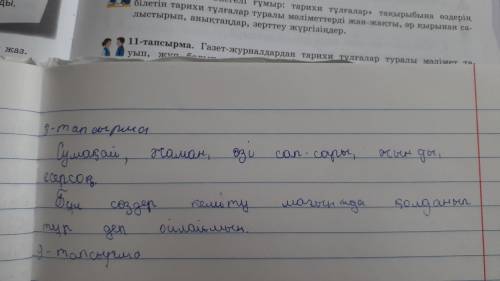 ғұмыр: тарихи тұлғалар» тақырыбына өздерің
ды.
білетін тарихи тұлғалар туралы мәліметтерді жан-жақты, әр қырынан са-
лыстырып, анықтаңдар, зерттеу жүргізіңдер.
11-тапсырма. Газет-журналдардан тарихи тұлғалар туралы мәлімет
жаз.
9-тапсырма
Сумақай, жаман, өзі сап-сары, жынды,
есерсоқ
Бұл сөздер келіту мағында қолданып
тұр деп ойлаймын.
9-тапсырма